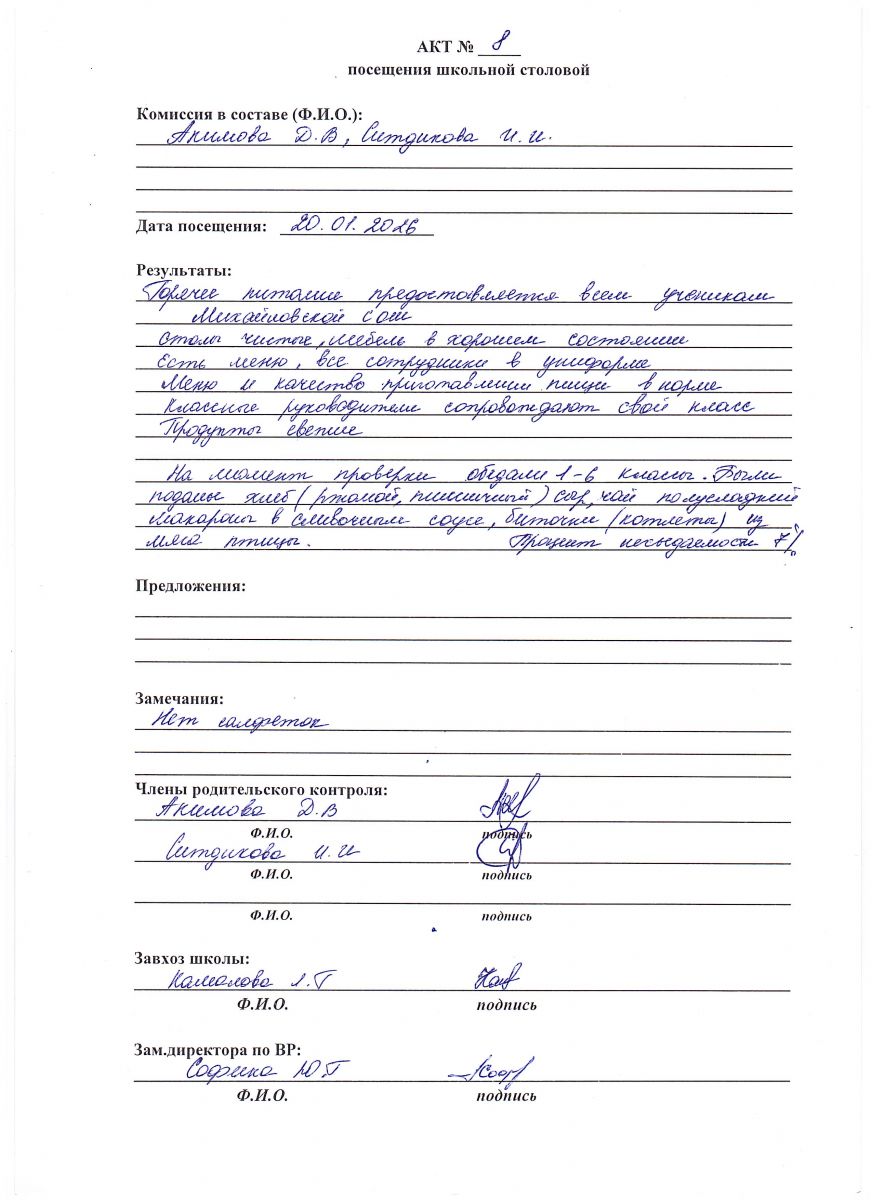 АКТ № 8
посещения школьной столовой
Комиссия в составе (Ф.И.О.):
Акимова Д.В, Ситдикова И.И.
Дата посещения: 20.01.2026
Результаты:
Горячее питание предоставляется всем ученикам
Михайловской сош
Столы чистые, мебель в хорошем состоянии
Есть меню, все сотрудники в униформе
Меню и качество приготавлении пищи в норме
Классные руководители сопровождают свой класс
Продукты свежие
На момент проверки обедали 1-6 классы. Были
поданы хлеб (ржаной, пшеничный) сыр, чай полусладкий
макароны в сливочным соусе, биточки (котлеты) из
мяса птицы. Процент несъедаемости 7%
Предложения:
Замечания:
Нет салфеток
Члены родительского контроля:
Акимова Д.В
Ф.И.О. подпись
Ситдикова И.И
Ф.И.О. подпись
Ф.И.О. подпись
Завхоз школы:
Камалова Л.Г
Ф.И.О. подпись
Зам.директора по ВР:
Софьина Ю.Г
Ф.И.О. подпись